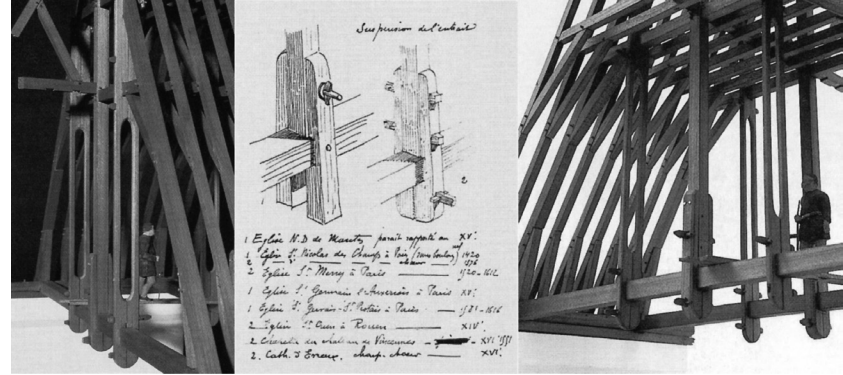 Suspension de l'entrait
2
1 Eglise N.D de Mantes paraît rapporté au XVe
1 Eglise St. Nicolas des Champs à Paris 1420
2 chœur 1576
2 Eglise St. Merry à Paris — 1520-1612
1 Eglise St. Germain l'Auxerrois à Paris XVe
1 Eglise St. Gervais-St. Protais à Paris — 1581-1616
2 Eglise St. Ouen à Rouen — XIVe
2 Chapelle du chateau de Vincennes — XVIe
2. Cath. d'Evreux, charp. chœur — XVe